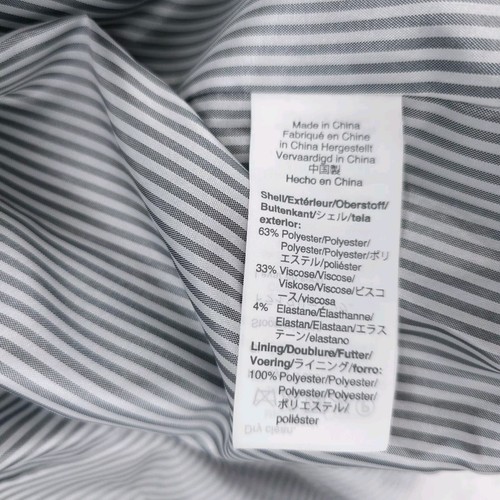 Made in China
Fabriqué en Chine
in China Hergestellt
Vervaardigd in China
中国製
Hecho en China
Shell/Extérieur/Oberstoff/
Buitenkant/シェル/tela
exterior:
63% Polyester/Polyester/
Polyester/Polyester/ポリ
エステル/poliéster
33% Viscose/Viscose/
Viskose/Viscose/ビスコ
ース/viscosa
4% Elastane/Élasthanne/
Elastan/Elastaan/エラス
テーン/elastano
Lining/Doublure/Futter/
Voering/ライニング/forro:
100% Polyester/Polyester/
Polyester/Polyester/
ポリエステル/
poliéster
Dry clean